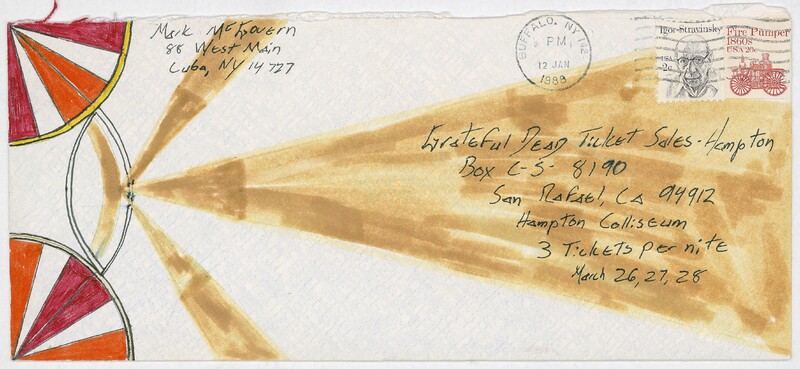 Mark McGovern
88 West Main
Cuba, NY 14727
BUFFALO, NY 142
PM
12 JAN
1988
Igor Stravinsky
USA
2c
Fire Pumper
1860s
USA 20c
Grateful Dead Ticket Sales - Hampton
Box C-S- 8190
San Rafael, CA 94912
Hampton Colliseum
3 Tickets per nite
March 26, 27, 28